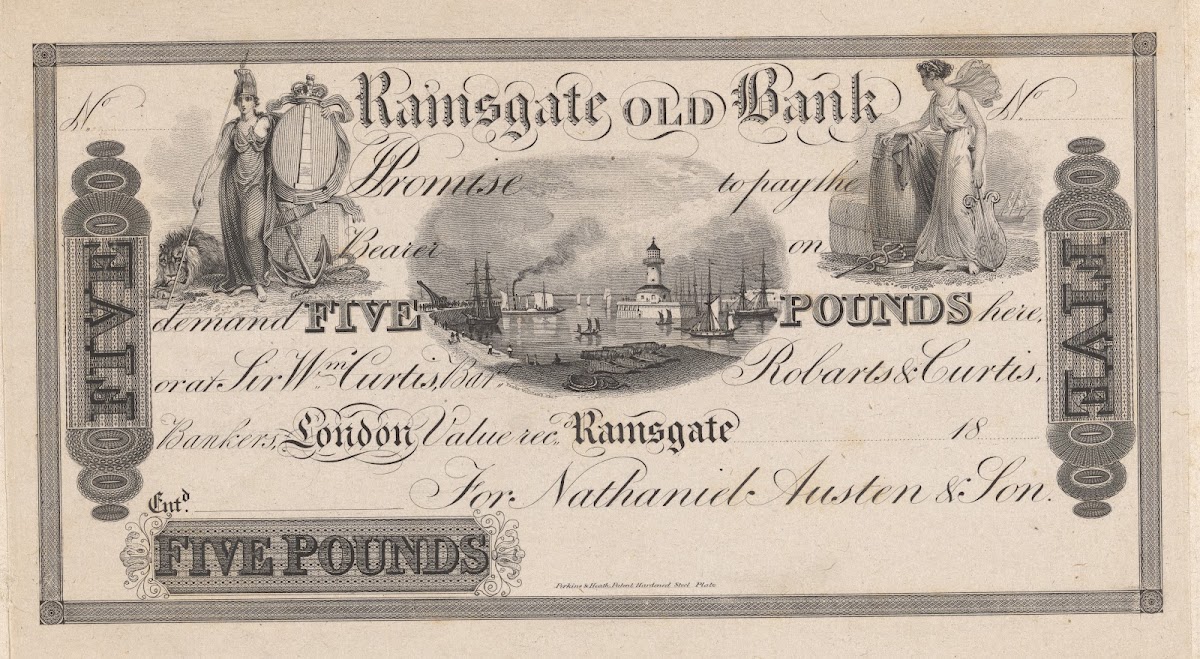 No Ramsgate OLD Bank No
I Promise to pay the
Bearer on
demand FIVE POUNDS here,
or at Sir Wm. Curtis, Bart. Robarts & Curtis,
Bankers, London Value recd. Ramsgate 18
Entd. For Nathaniel Austen & Son.
FIVE POUNDS
Perkins & Heath, Patent Hardened Steel Plate
FIVE
FIVE